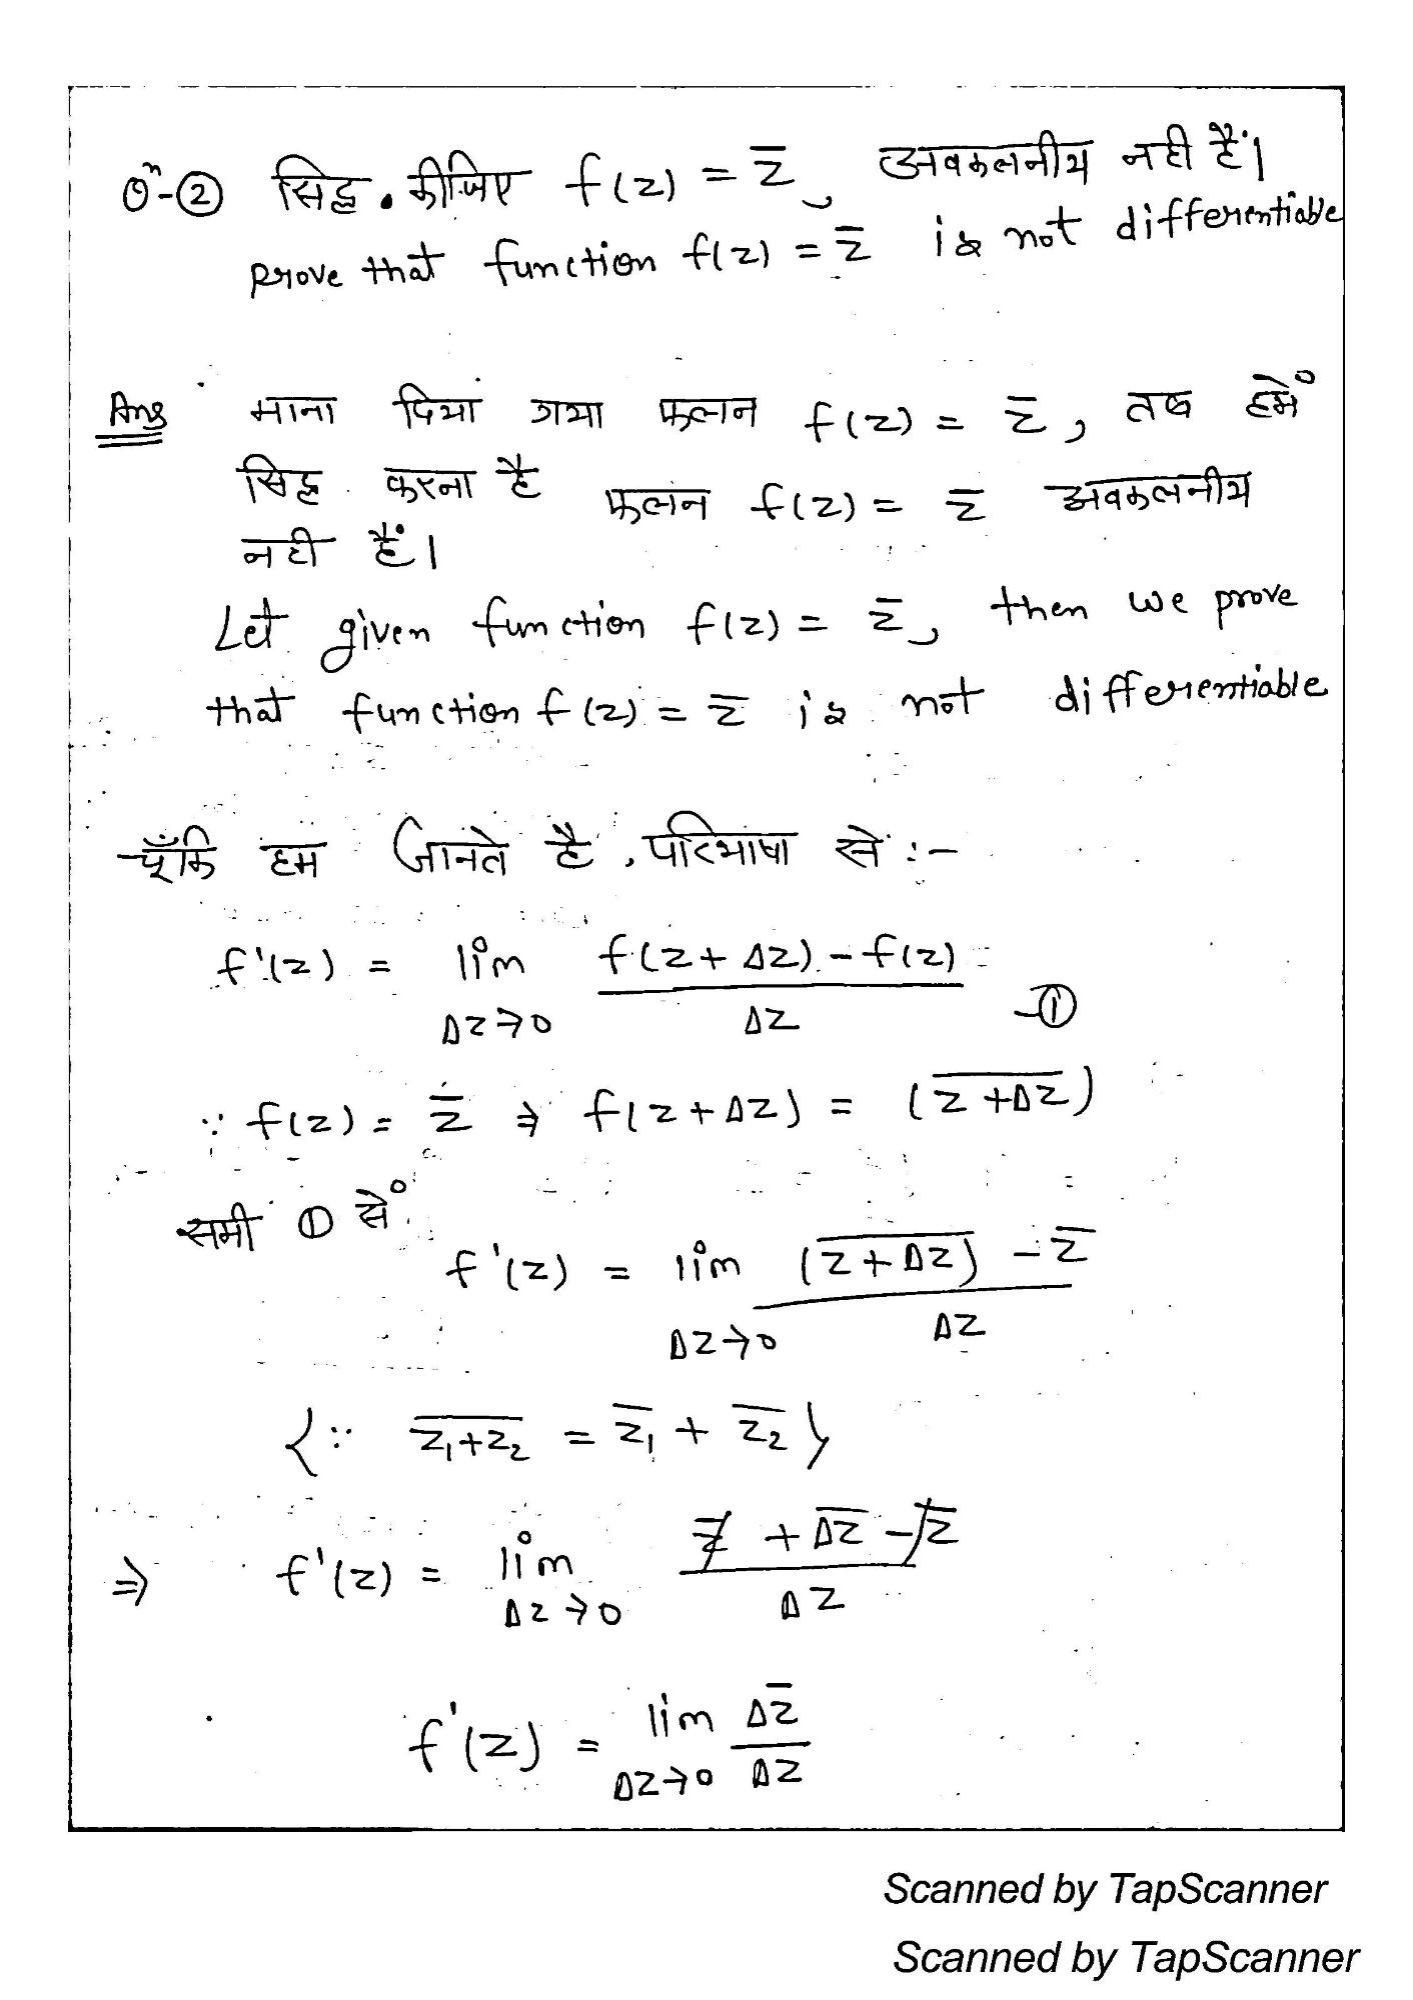 Qⁿ-② सिद्ध कीजिए f(z) = z̅, अवकलनीय नही हैं।
prove that function f(z) = z̅ is not differentiable
Ans माना दिया गया फलन f(z) = z̅, तब हमें
सिद्ध करना है फलन f(z) = z̅ अवकलनीय
नही हैं।
Let given function f(z) = z̅, then we prove
that function f(z) = z̅ is not differentiable
चूँकि हम जानते है, परिभाषा से :-
f'(z) = lim Δz→0 (f(z+Δz) - f(z)) / Δz -①
∵ f(z) = z̅ ⇒ f(z+Δz) = (\overline{z+Δz})
समी ① से
f'(z) = lim Δz→0 ((\overline{z+Δz}) - z̅) / Δz
{∵ \overline{z₁+z₂} = \overline{z₁} + \overline{z₂}}
⇒ f'(z) = lim Δz→0 (z̅ + \overline{Δz} - z̅) / Δz
f'(z) = lim Δz→0 Δz̅ / Δz
Scanned by TapScanner
Scanned by TapScanner